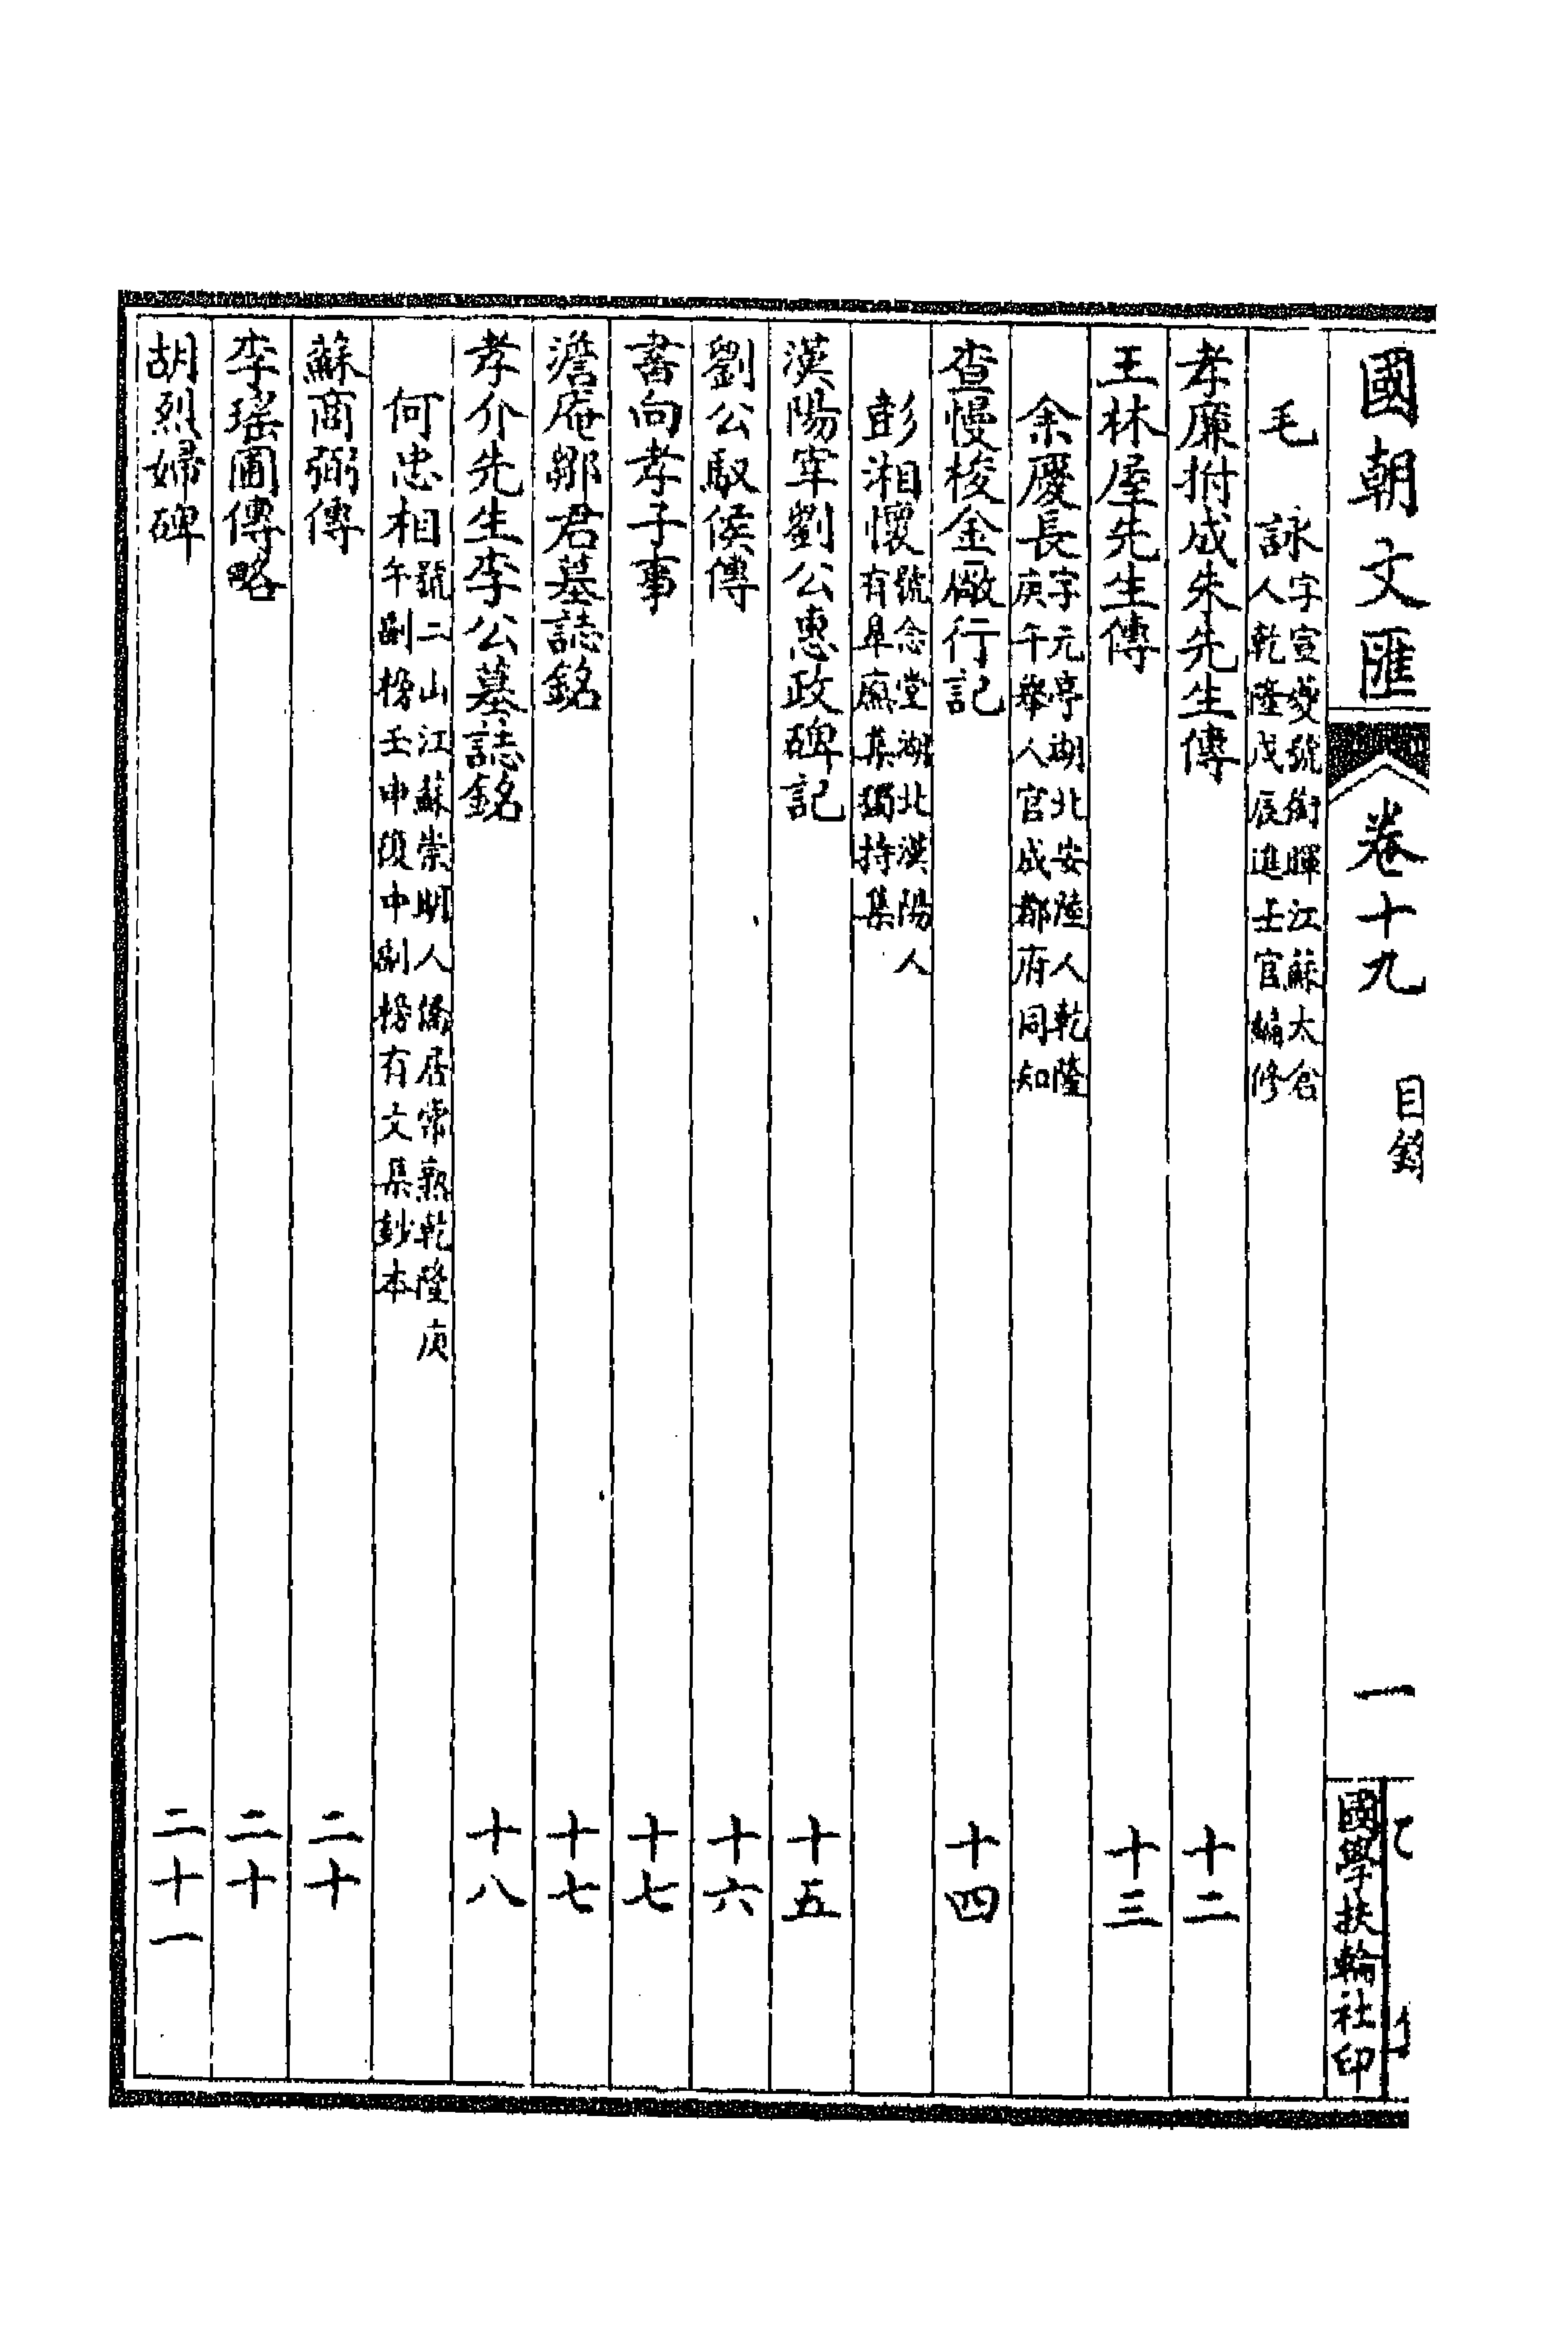 國朝文匯 卷十九 目錄 一 國學扶輪社印
毛 詠 字宣夔號衝暉江蘇太倉
人乾隆戊辰進士官編修
孝廉拊成朱先生傳 十二
王林屋先生傳 十三
余慶長 字元亭湖北安陸人乾隆
庚午舉人官成都府同知
查慢梭金廠行記 十四
彭湘懷 號念堂湖北漢陽人
有皐廡集獨持集
漢陽宰劉公惠政碑記 十五
劉公馭侯傳 十六
書向孝子事 十七
澹庵鄒君墓誌銘 十七
孝介先生李公墓誌銘 十八
何忠相 號二山江蘇崇明人僑居常熟乾隆庚
午副榜壬申復中副榜有文集鈔本
蘇商弼傳 二十
李瑤圃傳略 二十
胡烈婦碑 二十一